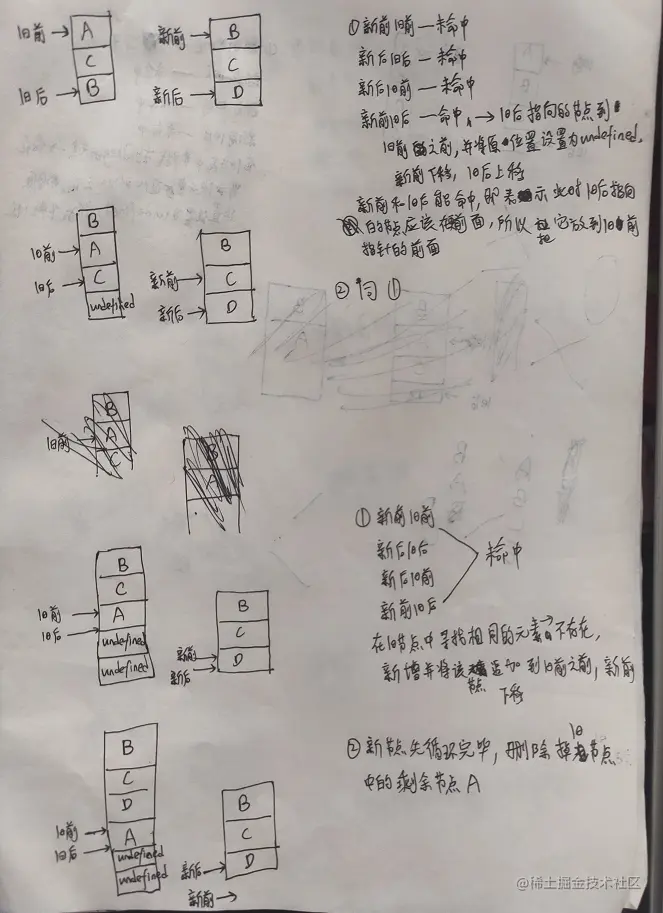 旧前→ A
C
旧后→ B
新前→ B
C
新后→ D
①新前旧前—未命中
新后旧后—未命中
新后旧前—未命中
新前旧后—命中,→旧后指向的节点到
旧前之前,并将原位置设置为undefined,
新前下移,旧后上移
新前和旧后能命中,即表示此时旧后指向
的节点应该在前面,所以把它放到旧前
指针的前面
B
旧前→ A
旧后→ C
undefined
B
新前→ C
新后→ D
②同①
B
旧前→ A
C
B
A
①新前旧前
新后旧后
新后旧前
新前旧后
未命中
在旧节点中寻找相同的元素→不存在,
新增并将该节点追加到旧前之前,新前
下移
B
C
旧前→ A
旧后→
undefined
undefined
B
C
新前→ D
新后→
②新节点先循环完毕,删除掉旧节点
中的剩余节点A
B
C
D
旧前→ A
旧后→
undefined
undefined
B
C
新后→ D
新前→
@稀土掘金技术社区